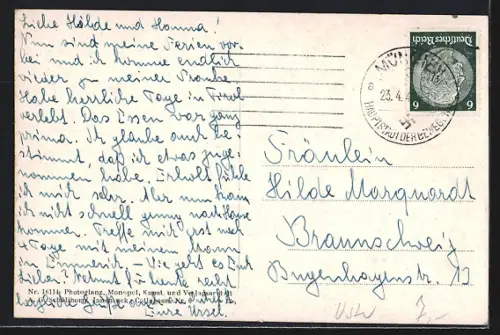 Liebe Hilde und Hanna!
Nun sind meine Ferien vor-
bei und ich komme endlich
wieder zu meiner Sprache
Habe herrliche Tage in Tirol
verlebt. Das Essen war ganz
prima. Ich glaube auch be-
stimmt, daß ich etwas zuge-
nommen habe. Erholt fühle
ich mich sehr. Aber nun kann
ich nicht schnell genug nach Hause
kommen. Treffe mich erst noch
4 Tage mit meinem Mann
in Wie geht es Euch
Lieben? Nehmt für heute recht
herzliche Grüße von
Eure Ursel.
Nr. 16114 Photoglanz, Monopol, Kunst- und Verlagsanstalt
Deutsches Reich
6 6
MÜNCHEN
a
23.4.
HAUPTSTADT DER BEWEGUNG
Fräulein
Hilde Marquardt
Braunschweig
Bugenhagenstr. 13
7,-